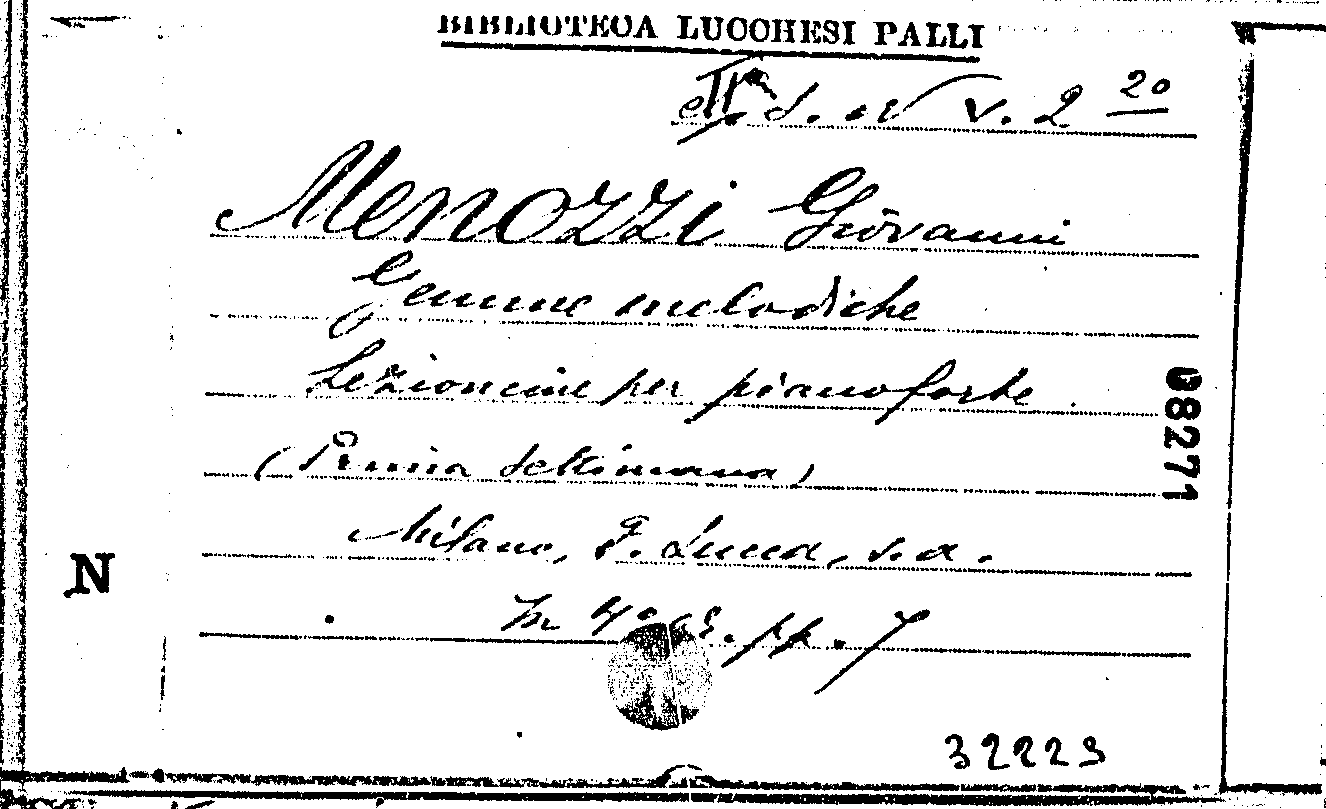 BIBLIOTECA LUCCHESI PALLI
v. 2 20
Menozzi Giovanni
Gemme melodiche
Lezioncine per pianoforte
(Prima Settimana)
Milano, F. Lucca, s. a.
In 4° pp. 7
N
08271
32223